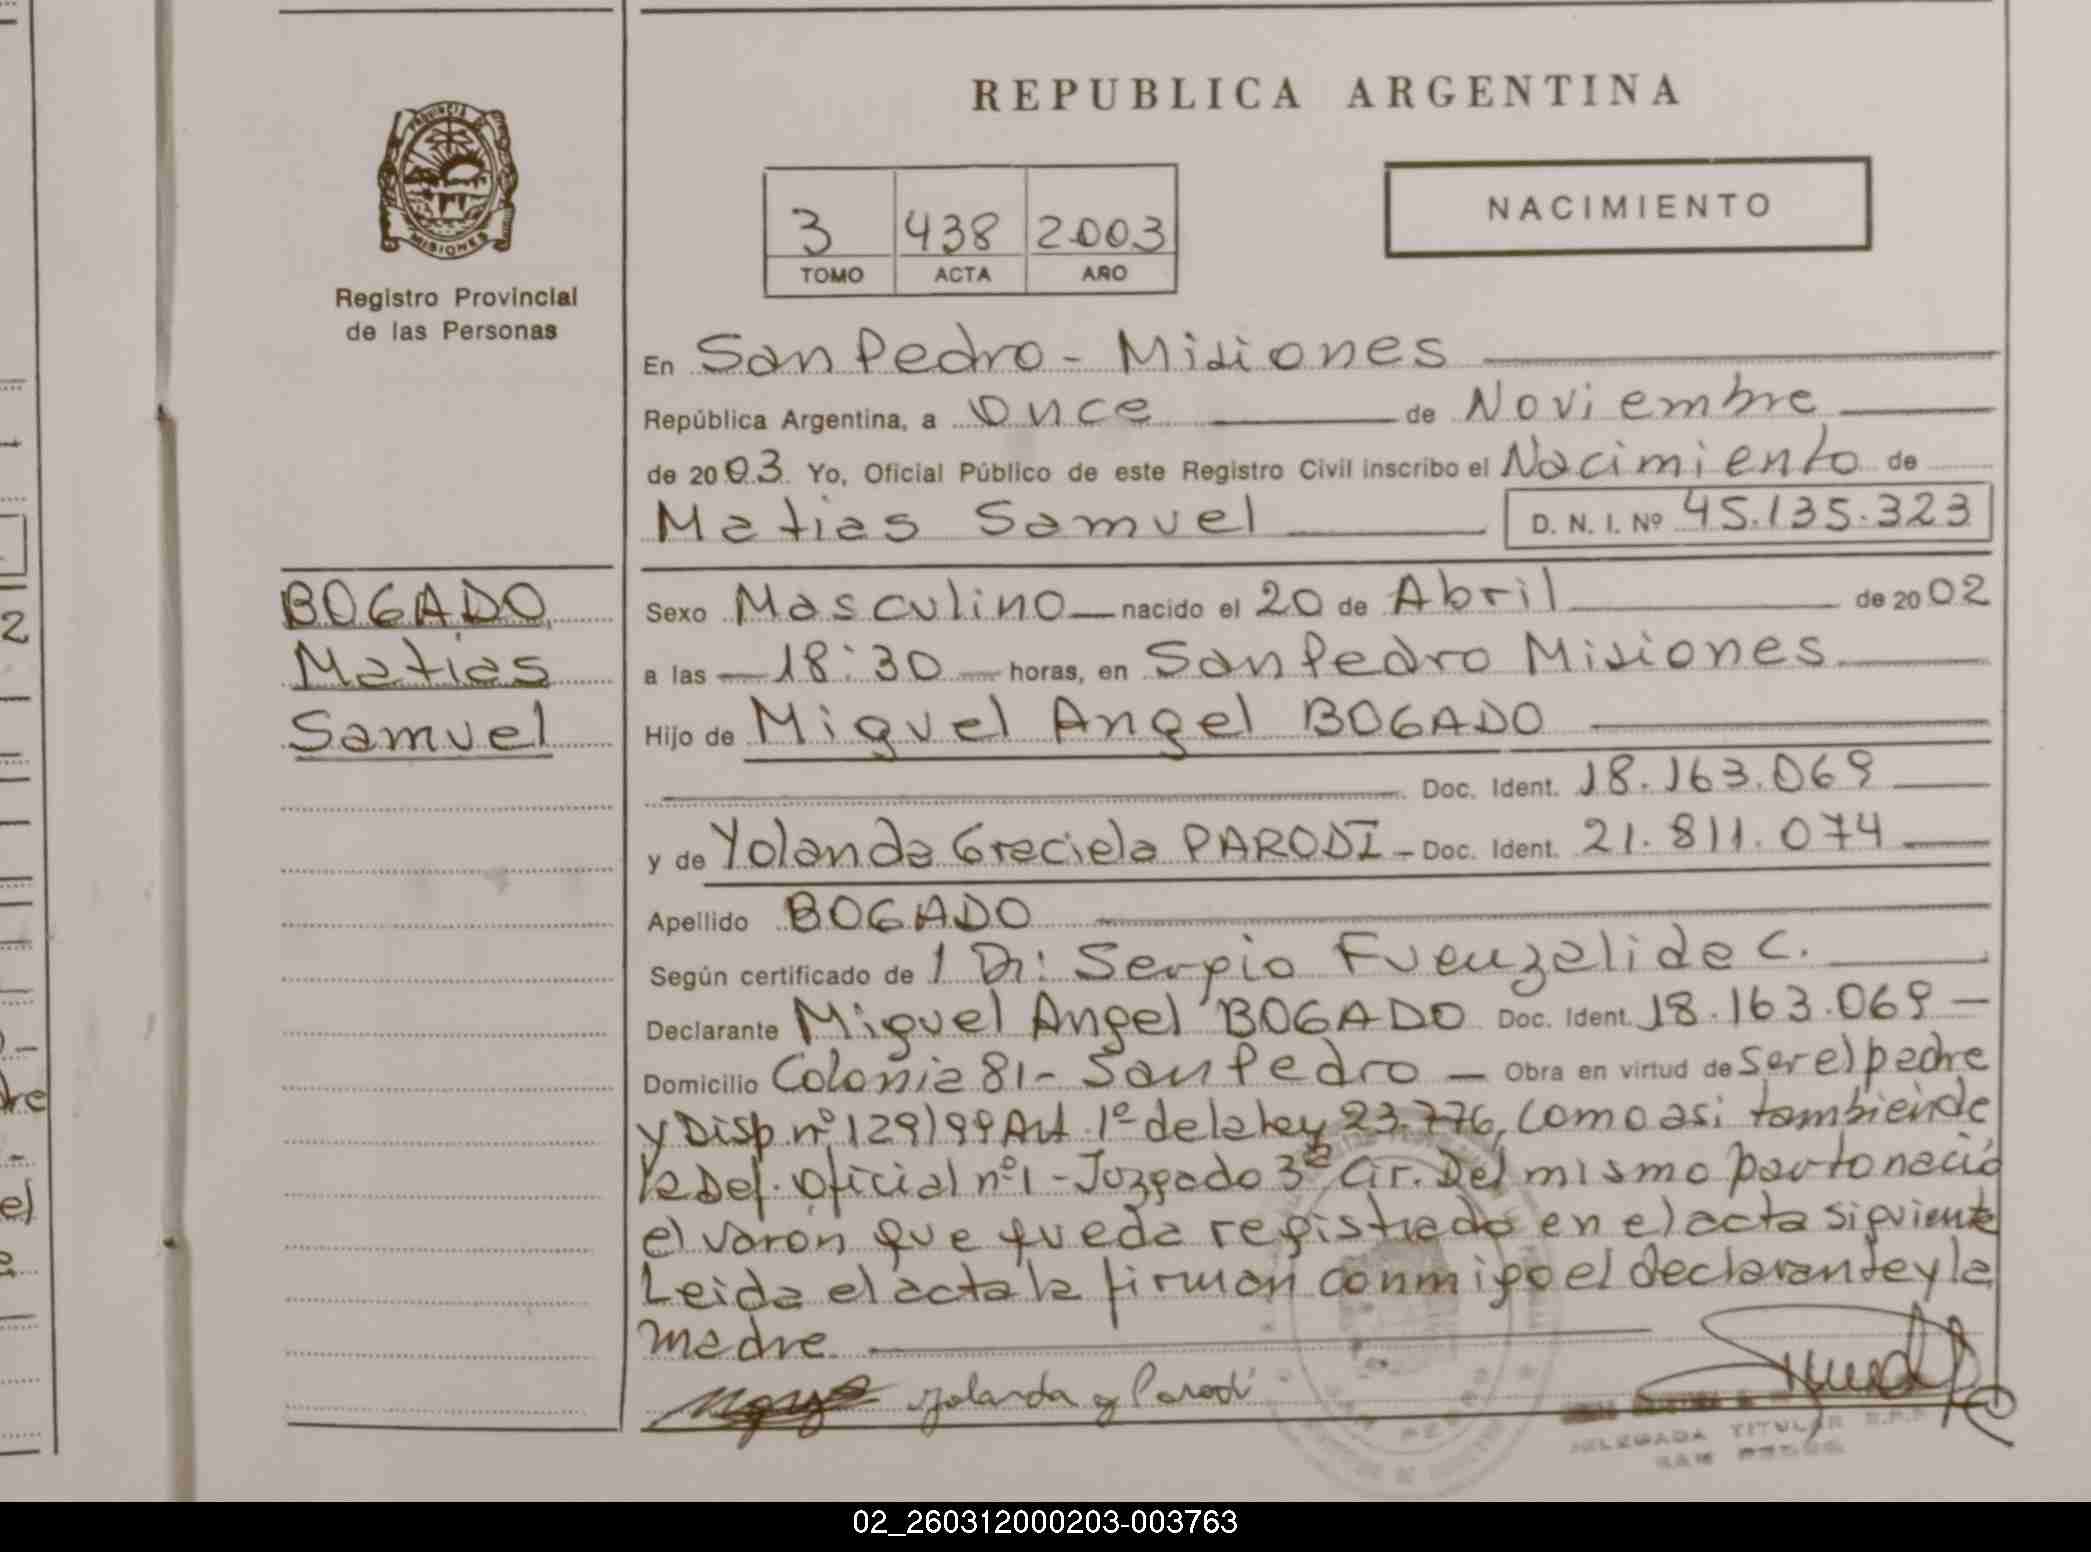 REPUBLICA ARGENTINA
PROVINCIA DE
MISIONES
Registro Provincial
de las Personas
3 438 2003
TOMO ACTA AÑO
NACIMIENTO
En San Pedro - Misiones
República Argentina, a once de Noviembre
de 2003 Yo, Oficial Público de este Registro Civil inscribo el Nacimiento de
Matias Samuel D. N. I. Nº 45.135.323
BOGADO
Matias
Samuel
Sexo Masculino nacido el 20 de Abril de 2002
a las 18:30 horas, en San Pedro Misiones
Hijo de Miguel Angel BOGADO
Doc. Ident. 18.163.069
y de Yolanda Graciela PARODI - Doc. Ident. 21.811.074
Apellido BOGADO
Según certificado de 1 Dr: Sergio Fuenzalida C.
Declarante Miguel Angel BOGADO Doc. Ident. 18.163.069 -
Domicilio Colonia 81 - San Pedro - Obra en virtud de ser el padre
y Disp nº 129/99 Art. 1º de la ley 23.776, como asi tambien de
la Def. Oficial nº 1 - Juzgado 3ª Cir. Del mismo parto nació
el varon que queda registrado en el acta siguiente
Leida el acta la firman conmigo el declarante y la
madre
Yolanda g Parodi
DELEGADA TITULAR R.P.P.
SAN PEDRO
02_260312000203-003763